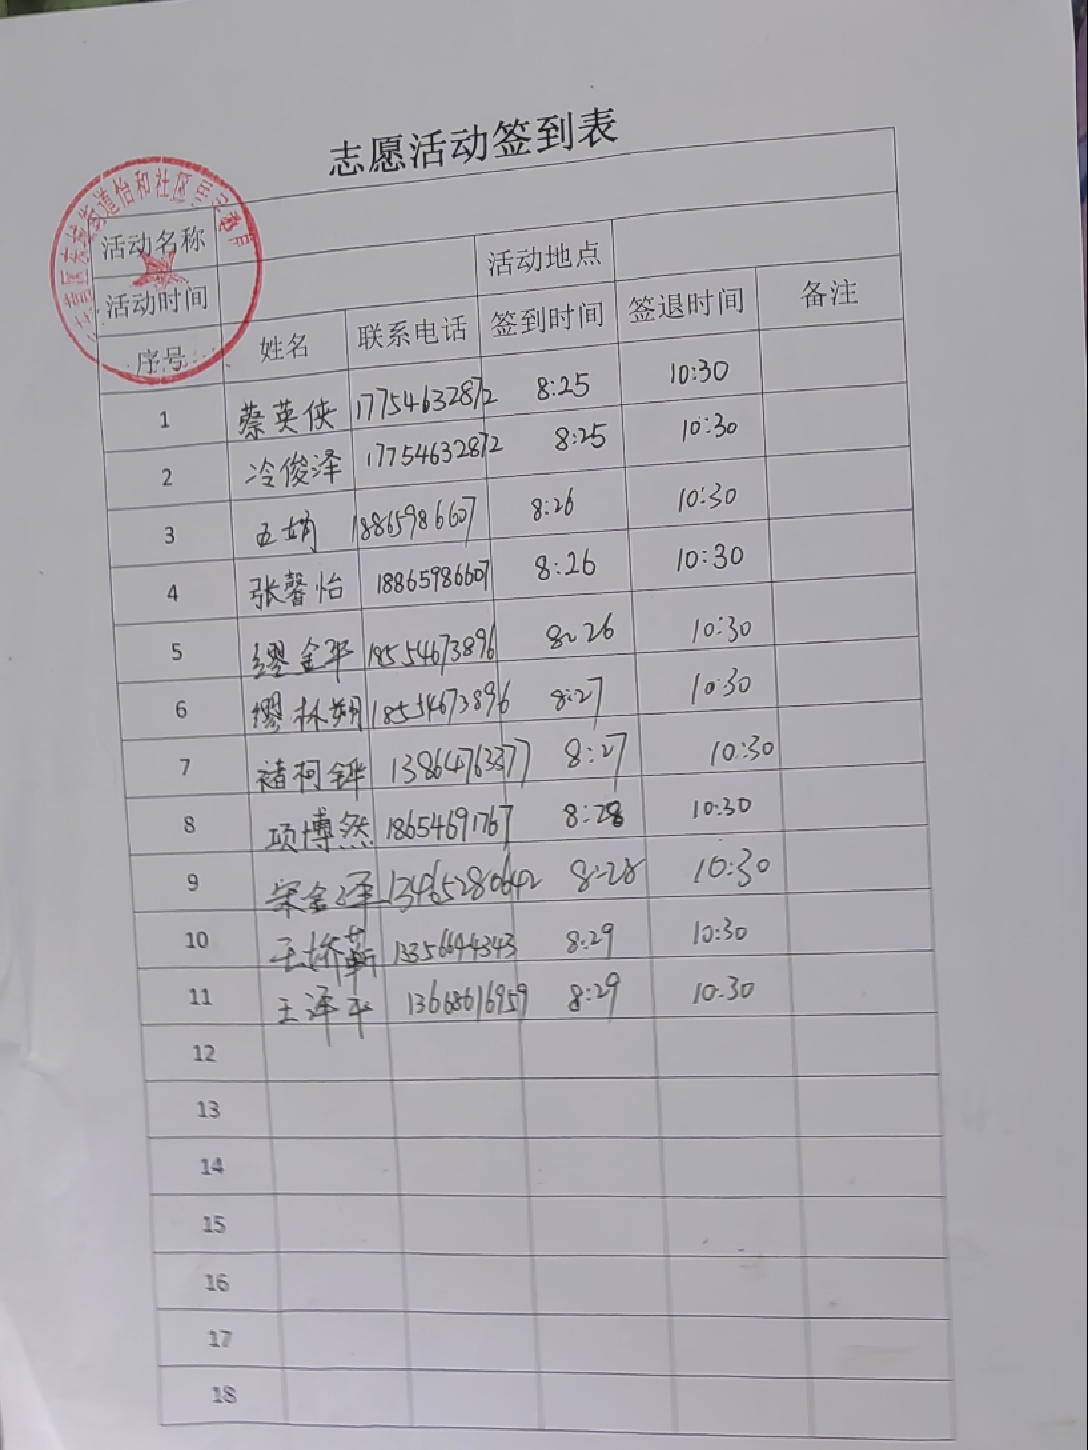 志愿活动签到表
街道怡和社区
活动名称
活动时间 活动地点
序号 姓名 联系电话 签到时间 签退时间 备注
1 蔡英侠 17754632872 8:25 10:30
2 冷俊泽 17754632872 8:25 10:30
3 18865986607 8:26 10:30
4 张馨怡 18865986607 8:26 10:30
5 缪金平 18554673896 8:26 10:30
6 缪林朔 18554673896 8:27 10:30
7 褚柯铧 13864763377 8:27 10:30
8 项博然 18654691767 8:28 10:30
9 13465280642 8:28 10:30
10 王娇蕲 8:29 10:30
11 王泽平 8:29 10:30
12
13
14
15
16
17
18